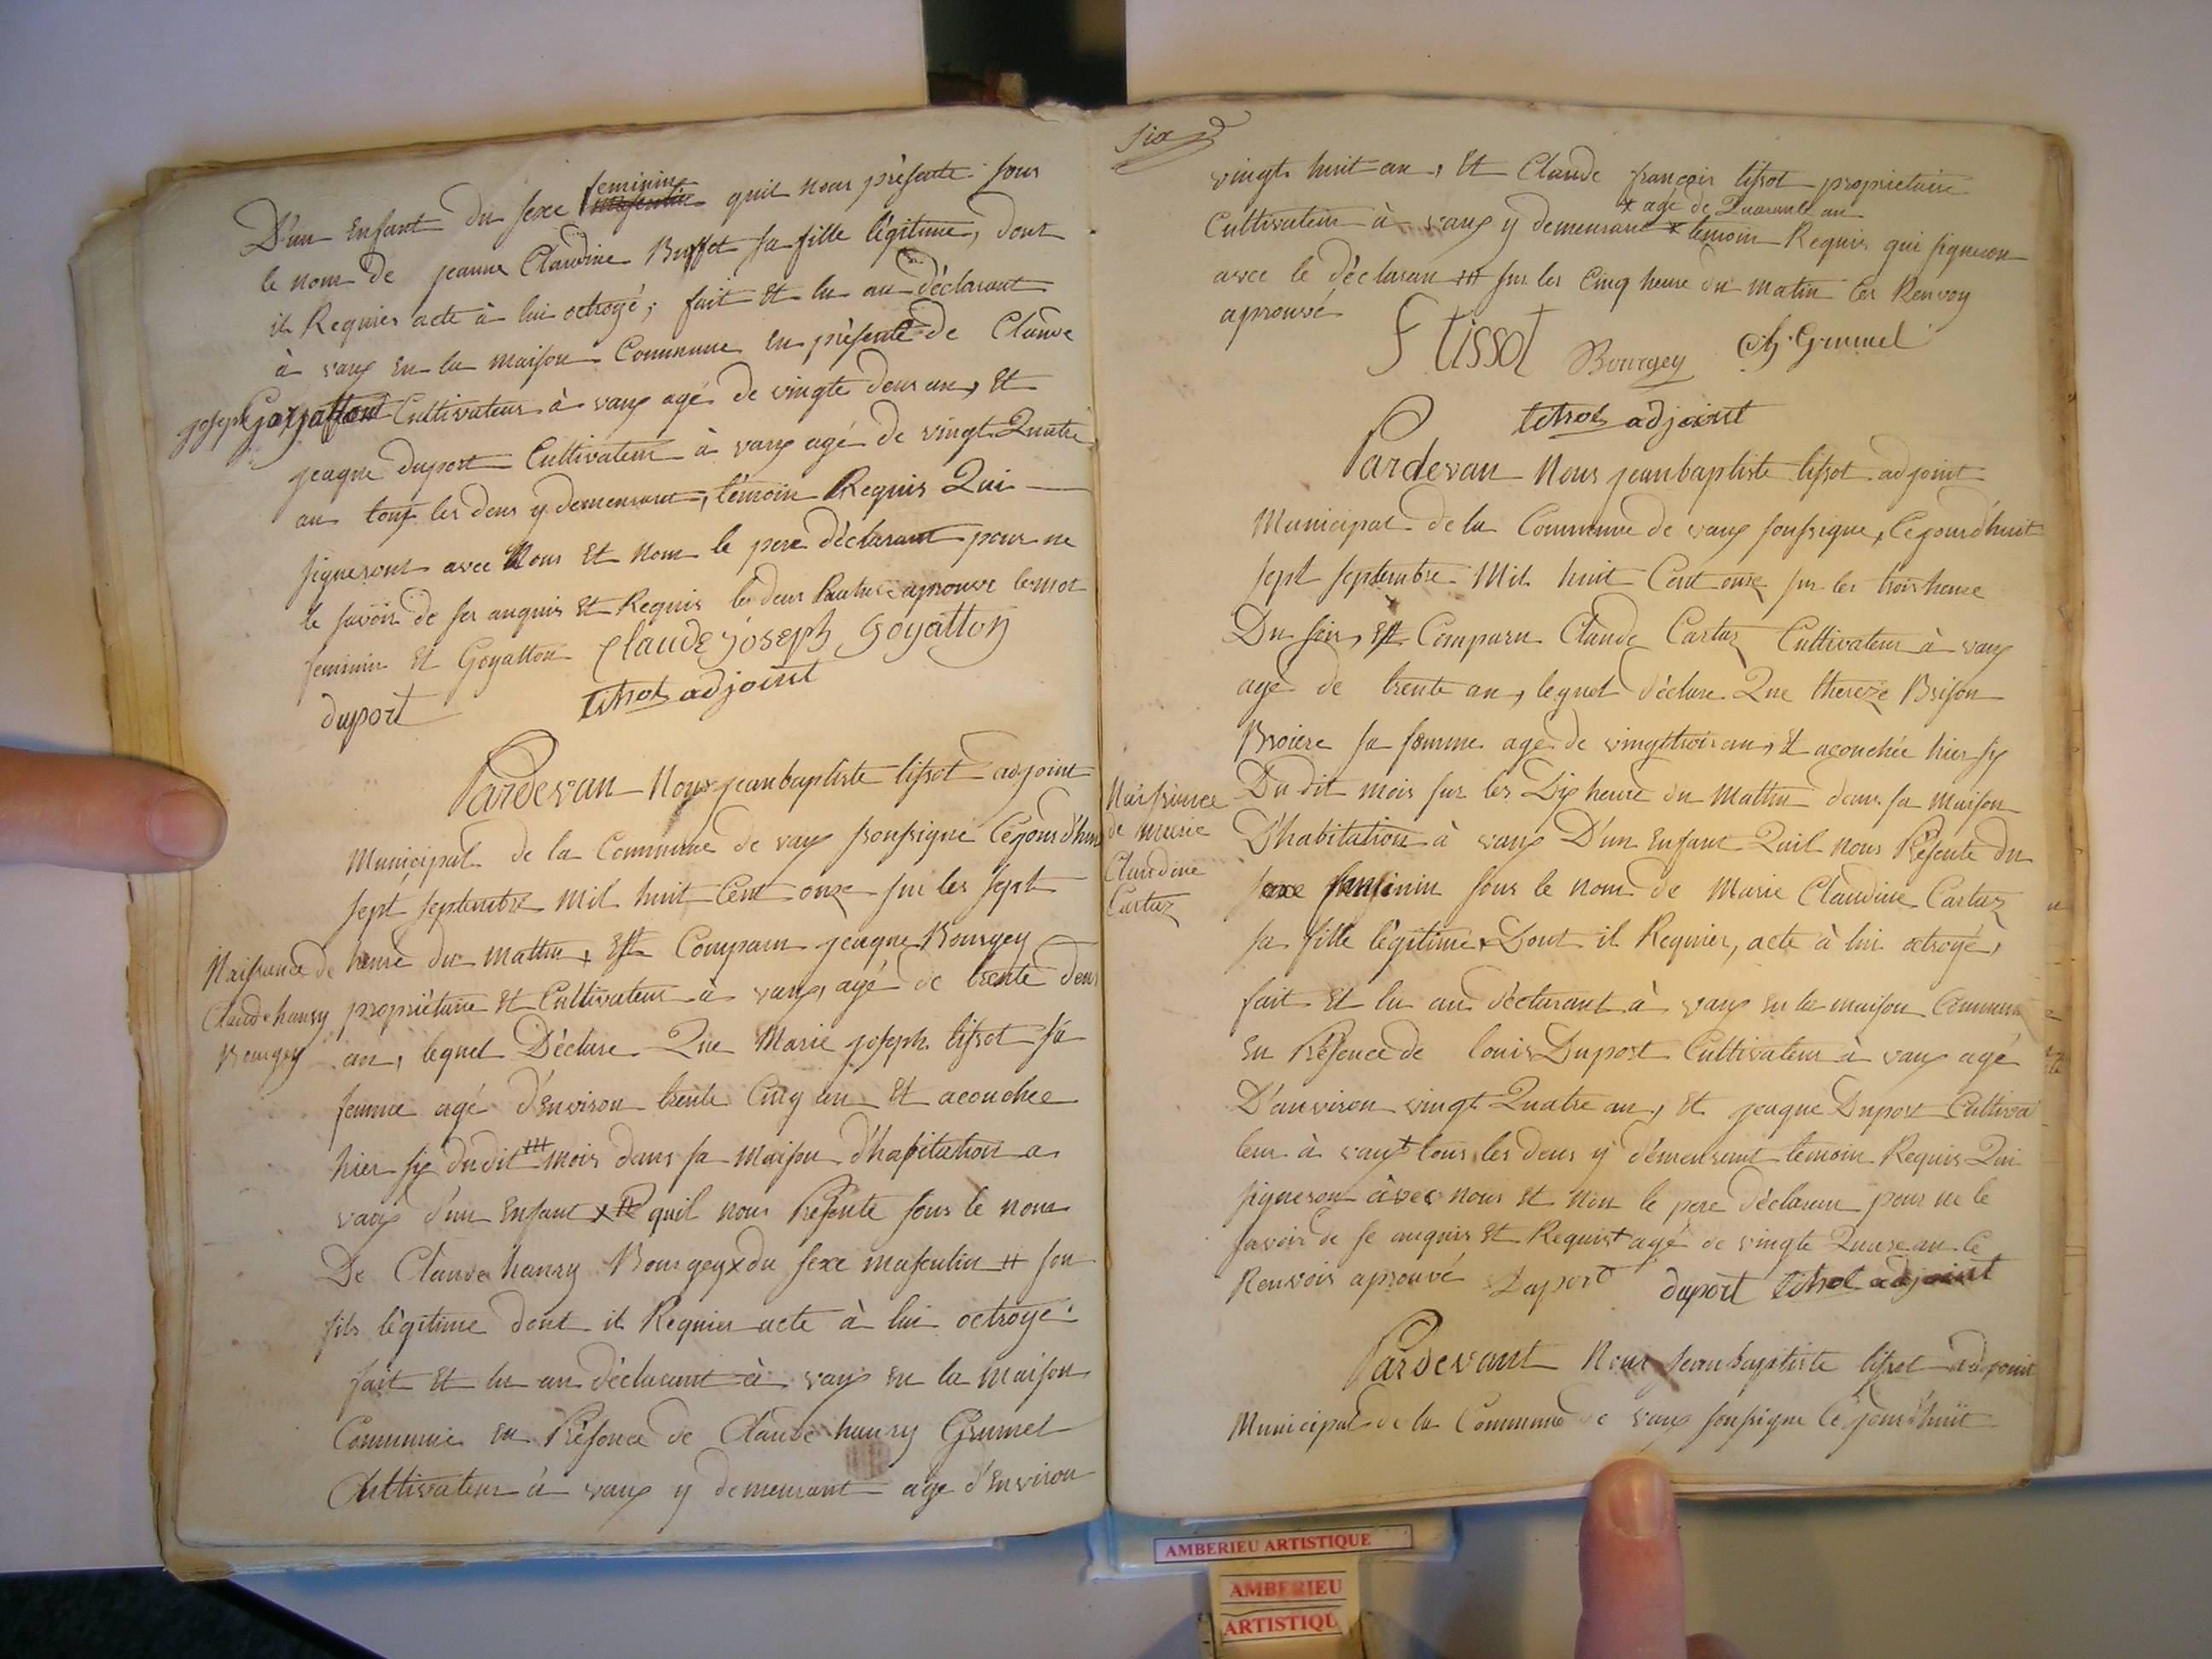 D'un Enfant du sexe feminin masculin quil nous présente sous
le nom de jeanne Claudine Buffet sa fille légitime, dont
il Requier acte à lui octroyé; fait Et lu au déclarant
à vaux En la maison Commune En présente de Claude
joseph Goyatton Cultivateur à vaux agé de vingte deux an, Et
jeaque duport Cultivateur à vaux agé de vingt Quatre
an tous les deux y demeurant, témoin Requis Qui
signeront avec Nous Et Non le pere déclarant pour ne
le savoir de ses anquis Et Requis les deux aprouve le mot
feminin Et Goyatton Claude joseph Goyatton
duport titsot adjoint
Pardevan Nous jean baptiste tissot adjoint
Municipal de la Commune de vaux soussigné Cejourd'hui
sept septembre Mil huit Cent onze sur les sept
heure du mattin, Est Comparu jeaque Bourgey
propriétaire Et Cultivateur à vaux, agé de trente deux
an, lequel Déclare Que Marie joseph tissot sa
femme agé d'Environ trente Cinq an Et acouchee
hier six dudit mois dans sa maison d'habitation a
vaux d'un Enfant x quil nous Présente sous le nom
De Claude hanry Bourgey x du sexe masculin # son
fils légitime dont il Requier acte à lui octroyé.
fait Et lu au déclarant à vaux En la maison
Commune En Présence de Claude hanry Grumel
Cultivateur à vaux y demeurant age d'Environ
Naissance de
Claude hanry
Bourgey
six
vingt huit an, Et Claude françois tissot proprietaire
x agé de Quarante an
Cultivateur à vaux y demeurant x temoin Requis qui signeron
avec le déclaran ### sur les Cinq heure du matin les Renvoy
aprouvé
F tissot Bourgey Ch Grumel
titsot adjoint
Pardevan Nous jean baptiste tissot adjoint
Municipal de la Commune de vaux soussigne, Cejourd'huit
sept septembre Mil huit Cent onze sur les trois heure
Du soir, Est Comparu Claude Cartaz Cultivateur à vaux
agé de trente an, lequel déclare Que thereze Brison
Broiere sa femme age de vingt trois an, Et acouchée hier six
Du dit mois sur les Dix heure du Mattin dans sa maison
D'habitation à vaux D'un Enfant Quil nous Présente du
sexe feminin sous le nom de Marie Claudine Cartaz
sa fille légitime, Dont il Requier, acte à lui octroyé,
fait Et lu au déclarant à vaux En la maison Commune
En Présence de louis Duport Cultivateur à vaux agé
D'anviron vingt Quatre an, Et jeaque Duport Cultiva
teur à vaux + tous les deux y démeurant temoin Requis Qui
signeron avec nous Et Non le pere déclaran pour ne le
savoir de se anquis Et Requis + agé de vingte Quatre an. Ce
Renvois aprouvé Duport duport titsot adjoint
Naissance
de marie
Claudine
Cartaz
Pardevant Nous jean baptiste tissot adjoint
Municipal de la Commune de vaux soussigne Cejourd'huit
AMBERIEU ARTISTIQUE
AMBERIEU
ARTISTIQU